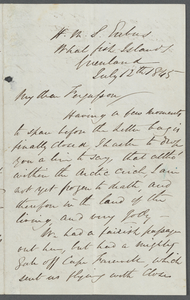 H. M. S. Erebus
Whale fish Islands
Greenland
July 12th 1845
My dear Ferguson
Having a few moments
to spare before the letter bag is
finally closed, I haste to drop
you a line to say, that altho
within the Arctic Circle, I am
not yet frozen to death, and
therefore in the land of the
living, and very jolly.
We had a fairish passage
out here, but had a mighty
Gale off Cape Farewell, which
sent us flying with close